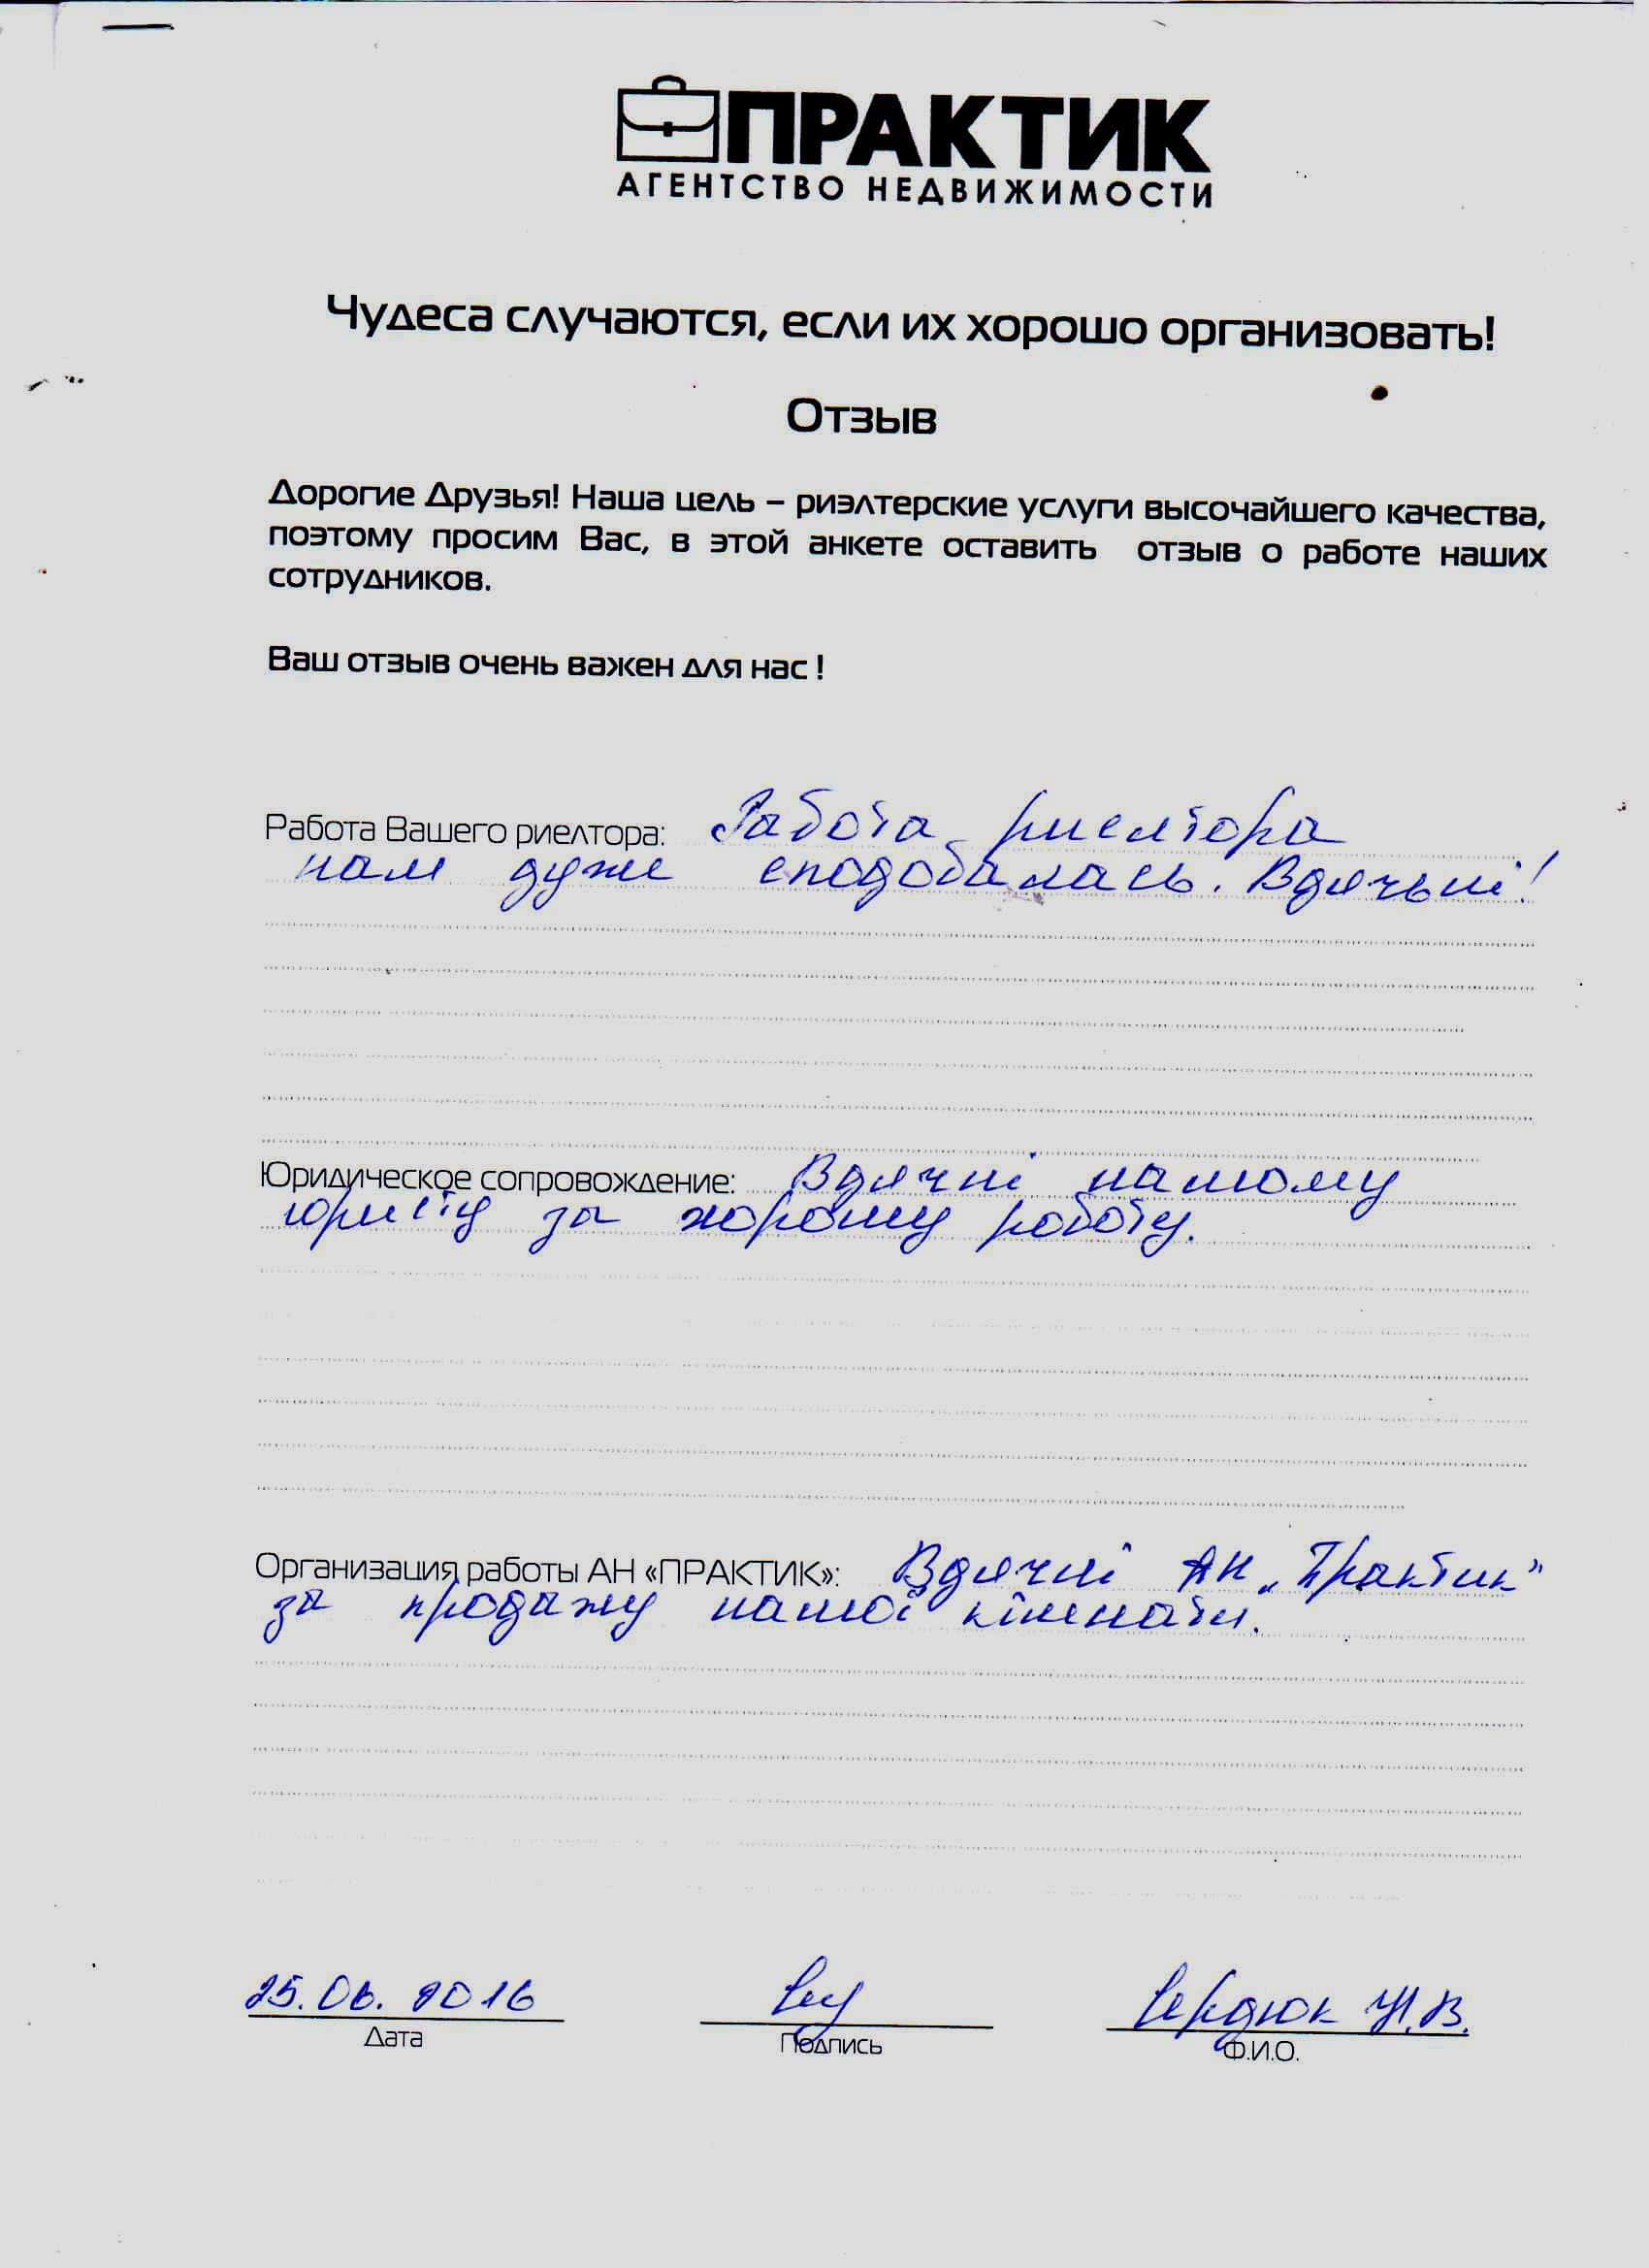 ПРАКТИК
АГЕНТСТВО НЕДВИЖИМОСТИ
Чудеса случаются, если их хорошо организовать!
Отзыв
Дорогие Друзья! Наша цель – риэлтерские услуги высочайшего качества,
поэтому просим Вас, в этой анкете оставить отзыв о работе наших
сотрудников.
Ваш отзыв очень важен для нас !
Работа Вашего риелтора: Работа риелтора
нам дуже сподобалась. Вдячьні!
Юридическое сопровождение: Вдячні нашому
юристу за хорошу роботу.
Организация работы АН «ПРАКТИК»: Вдячні АН „Практик"
за продажу нашої кімнати.
25.06.2016
Дата
Подпись
Сердюк И.В.
Ф.И.О.